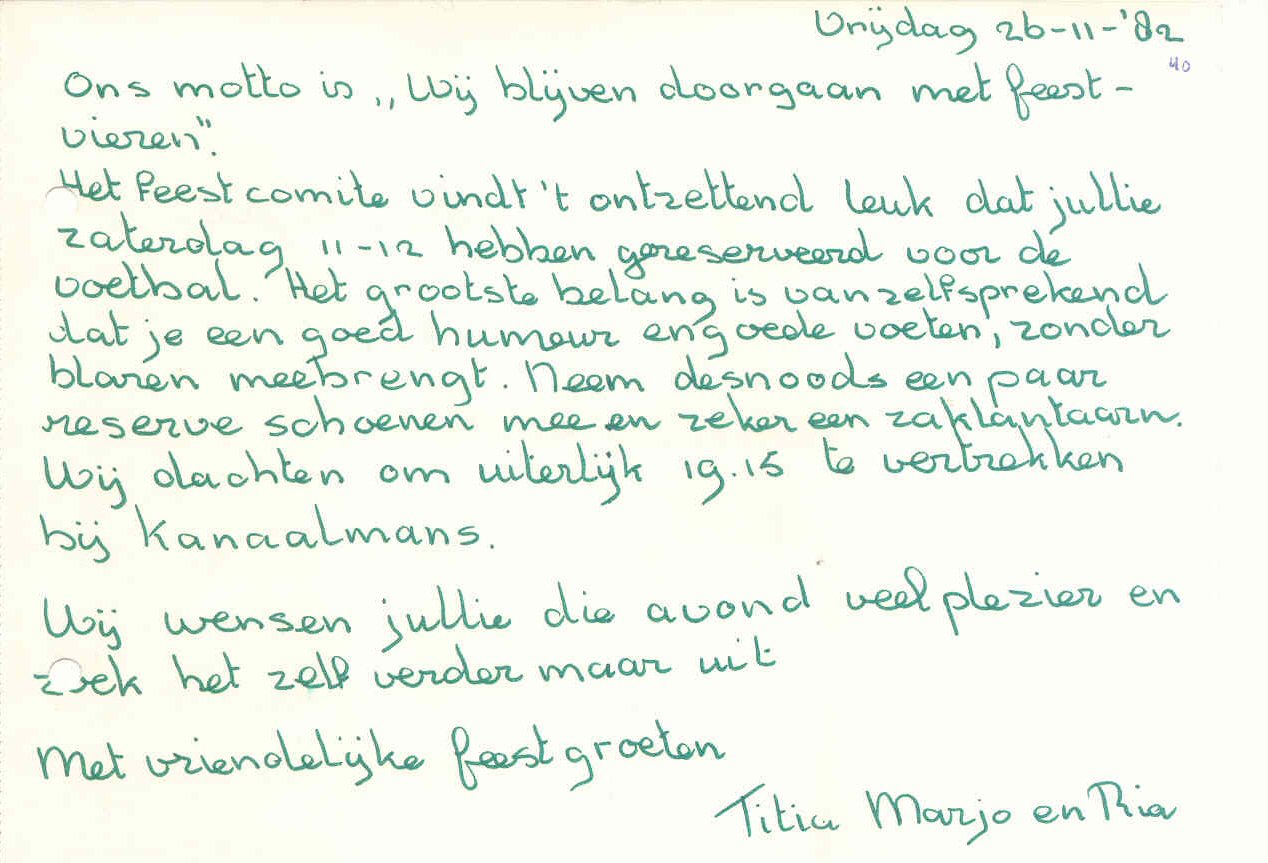 Vrijdag 26-11-'82
40
Ons motto is ,,Wij blijven doorgaan met feest-
vieren".
Het feestcomite vindt 't ontzettend leuk dat jullie
zaterdag 11-12 hebben gereserveerd voor de
voetbal. Het grootste belang is vanzelfsprekend
dat je een goed humeur en goede voeten, zonder
blaren meebrengt. Neem desnoods een paar
reserve schoenen mee en zeker een zaklantaarn.
Wij dachten om uiterlijk 19.15 te vertrekken
bij Kanaalmans.
Wij wensen jullie die avond veel plezier en
zoek het zelf verder maar uit
Met vriendelijke feestgroeten
Titia Marjo en Ria